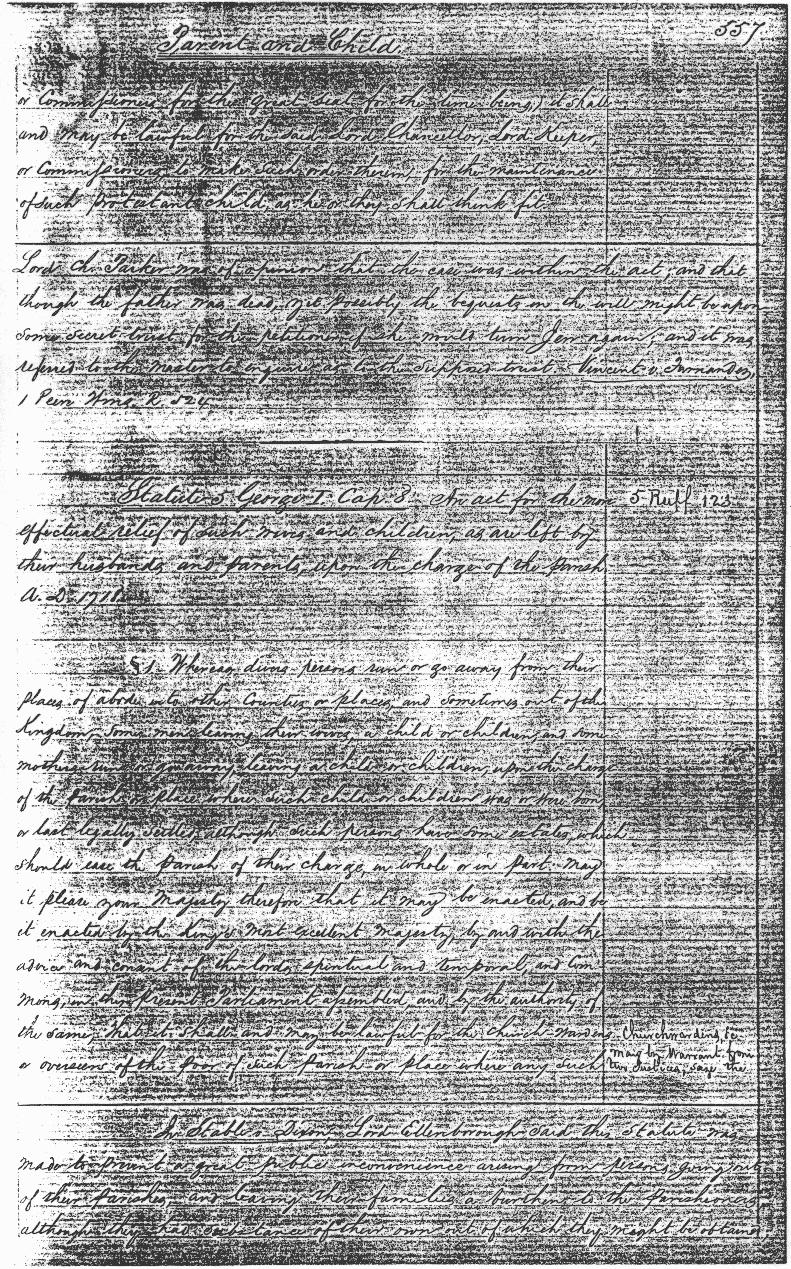 557
Parent and Child
or Commissioners for the great seal for the time being, it shall
and may be lawful for the said Lord Chancellor, Lord Keeper,
or Commissioners to make such order therein, for the maintenance
of such protestant child as he or they shall think fit.
Lord Ch. Parker was of opinion that the case was within the act, and that
though the father was dead, yet possibly the bequests in the will might be upon
some secret trust for the petitioner if she would turn Jew again, and it was
referred to the master to enquire as to the supposed trust. Vincent v. Fernandez,
1 Peere Wms. R. 524
Statute 5 George I. Cap. 8. An act for the more
5 Ruff 123
effectual relief of such wives and children, as are left by
their husbands and parents, upon the charge of the parish
A. D. 1718.
§ 1. Whereas divers persons run or go away from their
places of abode into other Counties or places, and sometimes out of the
Kingdom, some men leaving their wives, a child or children, and some
mothers run or go away, leaving a child or children, upon the charge
of the parish or place where such child or children was or were born
or last legally settled, although such persons have some estates, which
should ease the parish of their charge, in whole or in part. May
it please your Majesty therefore that it may be enacted, and be
it enacted by the King's most excellent majesty, by and with the
advice and consent of the lords spiritual and temporal, and Com
mons, in this present Parliament assembled and by the authority of
the same, that it shall and may be lawful for the church-wardens
or overseers of the poor of such parish or place where any such
Churchwardens, &c
may by Warrant from
two Justices, seize the
In Stable v. Dixon, Lord Ellenborough said this Statute was
made to prevent a great public inconvenience arising from persons going out
of their parishes and leaving their families a burthen to the parishioners,
although they had substance of their own out of which they might be obtained